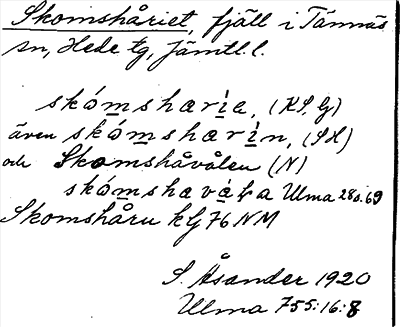 Skomshåriet, fjäll i Tännäs
sn, Hede tg, Jämtl. l.
skómsharia, (KS, G)
även skómsharin, (SH)
och Skomshåvålen (N)
skómshavála Ulma 280:69
Skomshåru kG 76 NM
S. Åsander 1920
Ulma 755:16:8